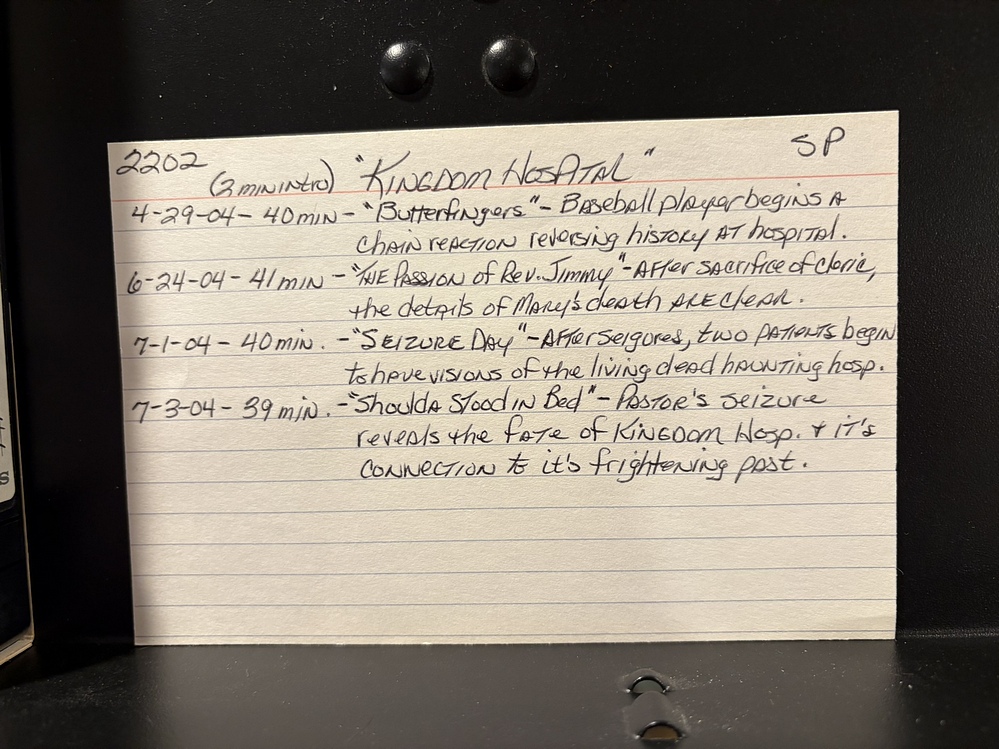 2202
SP
(2 min intro) "KINGDOM HOSPITAL"
4-29-04 - 40 MIN - "Butterfingers" - BASEball player begins A
chain reaction reversing history AT hospital.
6-24-04 - 41 MIN - "THE PASSION of Rev. Jimmy" - AFTER SACRIFICE of cleric,
the details of MARY'S death ARE CleAR.
7-1-04 - 40 MIN. - "SEIZURE DAY" - AFTER seigures, two PATIENTS begin
to have visions of the living dead haunting hosp.
7-3-04 - 39 MIN. - "Shoulda Stood IN Bed" - PASTOR'S seizure
reveals the FATE of KINGDOM Hosp. + IT'S
CONNECTION to it's frightening past.
s